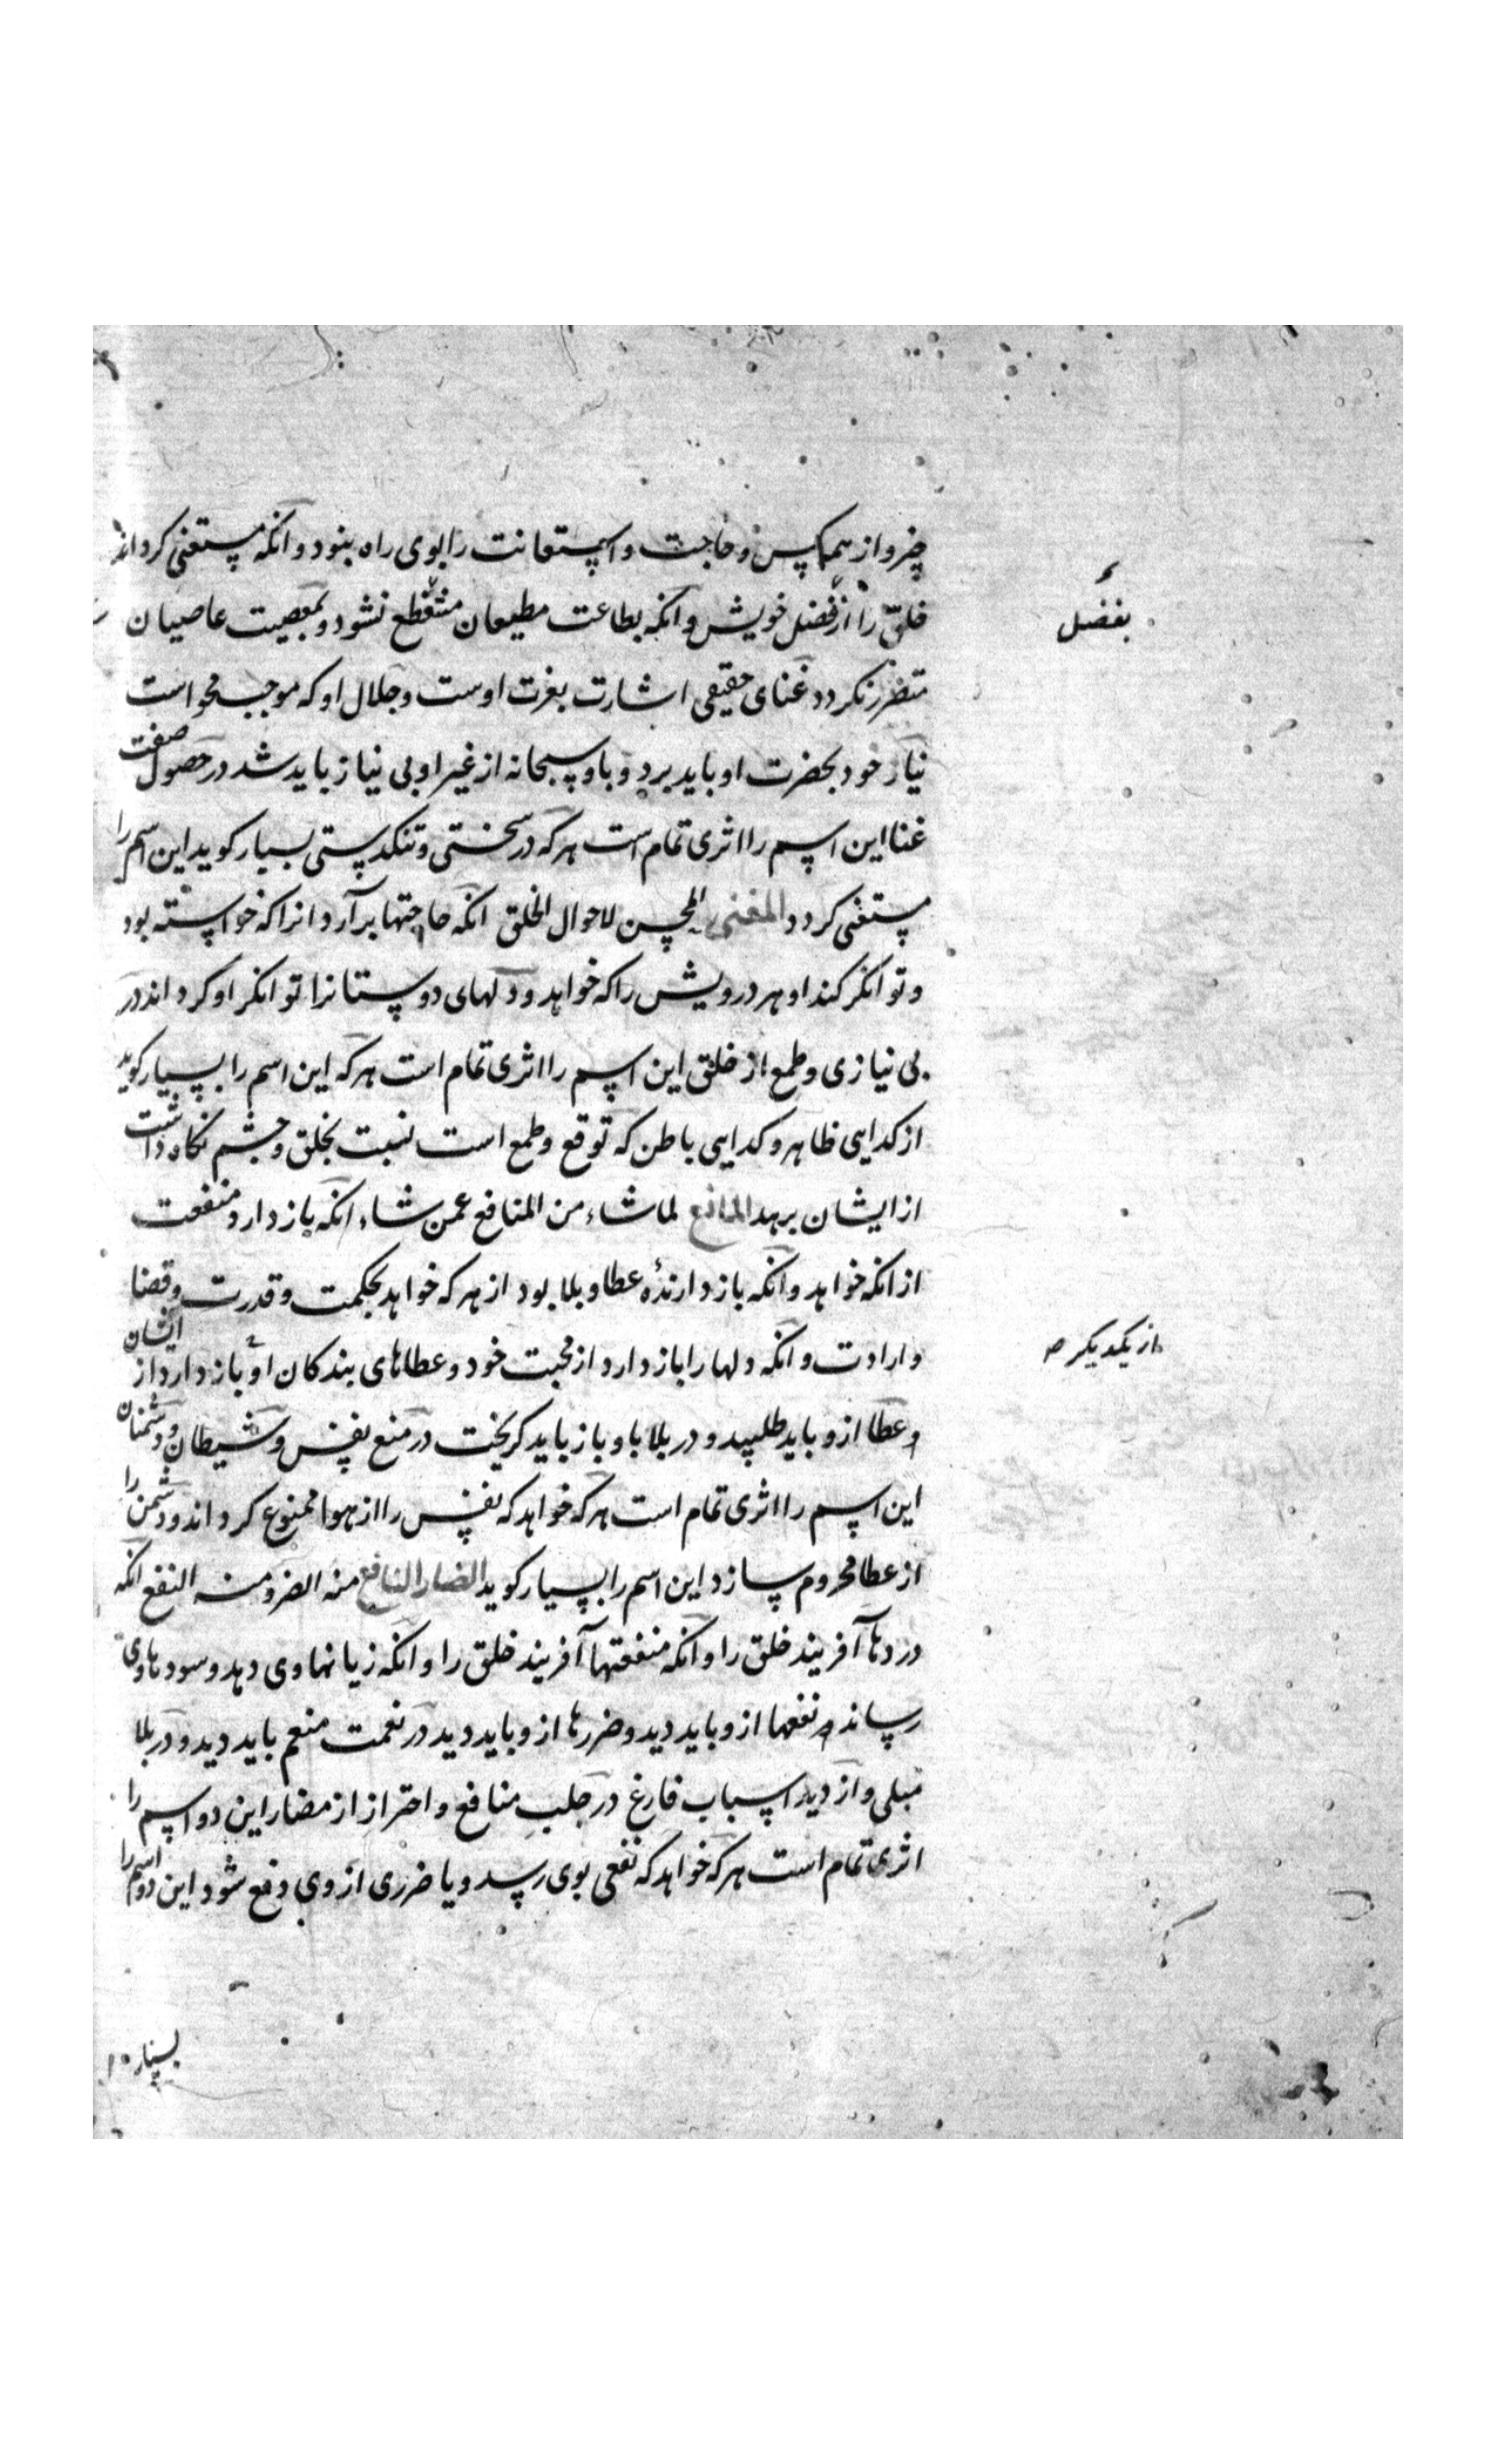 چیز و از همه کس و حاجت و استعانت را بوی راه نبود و آنکه مستغنی کرداند
خلق را از فضل خویش و آنکه بطاعت مطیعان منتفع نشود و بمعصیت عاصیان
بفضل
متضرر نکردد غنای حقیقی اشارت بعزت اوست و جلال او که موجب محو است
نیاز خود بحضرت او باید برد و باو سبحانه از غیر او بی نیاز باید شد در حصول صفت
غنا این اسم را اثری تمام است هر که در سختی و تنکدستی بسیار کوید این اسم را
مستغنی کردد المغنی المحسن لاحوال الخلق آنکه حاجتها برآرد انرا که خواسته بود
و توانکر کند او هر درویش را که خواهد و دلهای دوستانرا توانکر او کرداند در
بی نیازی و طمع از خلق این اسم را اثری تمام است هر که این اسم را بسیار کوید
از کدایی ظاهر و کدایی باطن که توقع و طمع است نسبت بخلق و چشم نکاه داشت
از ایشان برهد المانع لما شاء من المنافع عمن شاء آنکه باز دارد منفعت
از آنکه خواهد و آنکه باز دارندهٔ عطا و بلا بود از هر که خواهد بحکمت و قدرت و قضا
و ارادت و آنکه دلها را باز دارد از محبت خود و عطاهای بندکان او باز دارد از ایشان
از یکدیکر ص
و عطا ازو باید طلبید و در بلا باو باز باید کریخت در منع نفس و شیطان و دشمنان
این اسم را اثری تمام است هر که خواهد که نفس را از هوا ممنوع کرداند و دشمن را
از عطا محروم سازد این اسم را بسیار کوید الضار النافع منه الضر و منه النفع آنکه
دردها آفریند خلق را و آنکه منفعتها آفریند خلق را و آنکه زیانها وی دهد و سودها وی
رساند و نفعها ازو باید دید و ضررها ازو باید دید در نعمت منعم باید دید و در بلا
مبلی و از دید اسباب فارغ در جلب منافع و احتراز از مضار این دو اسم را
اثری تمام است هر که خواهد که نفعی بوی رسد و یا ضرری از وی دفع شود این دو اسم را
بسیار